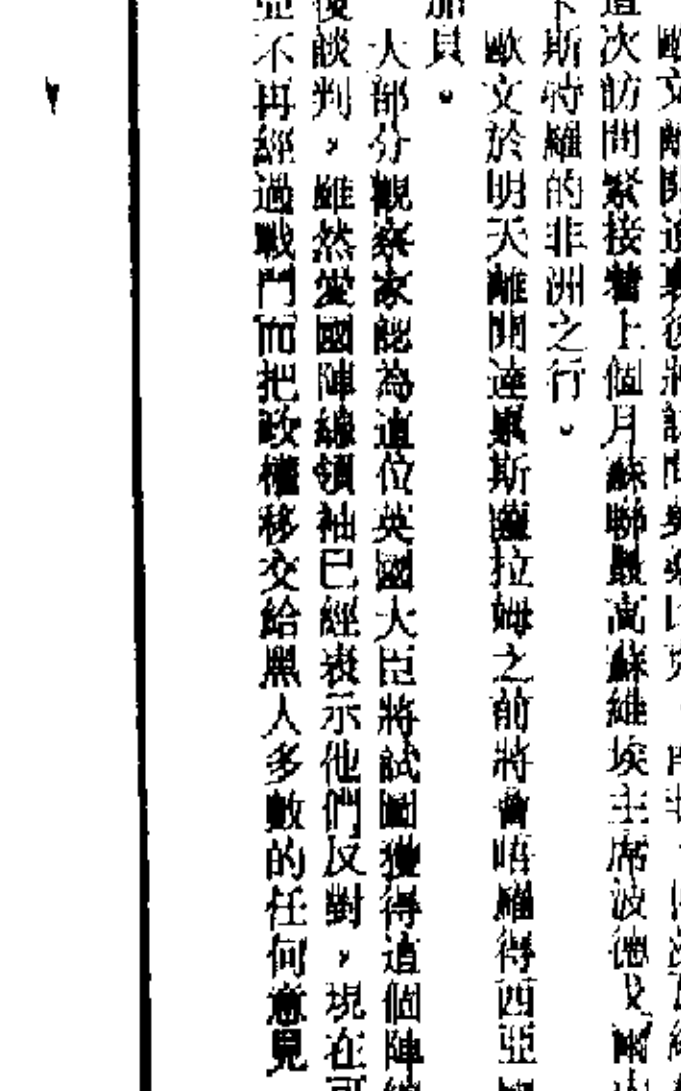 這次訪問緊接着上個月蘇聯最高蘇維埃主席波德戈爾
卡斯特羅的非洲之行。
歐文於明天離開達累斯薩拉姆之前將會晤羅得西亞
加貝。
大部分觀察家認為這位英國大臣將試圖獲得這個陣線
後談判，雖然愛國陣線領袖已經表示他們反對，現在可
亞不再經過戰鬥而把政權移交給黑人多數的任何意見